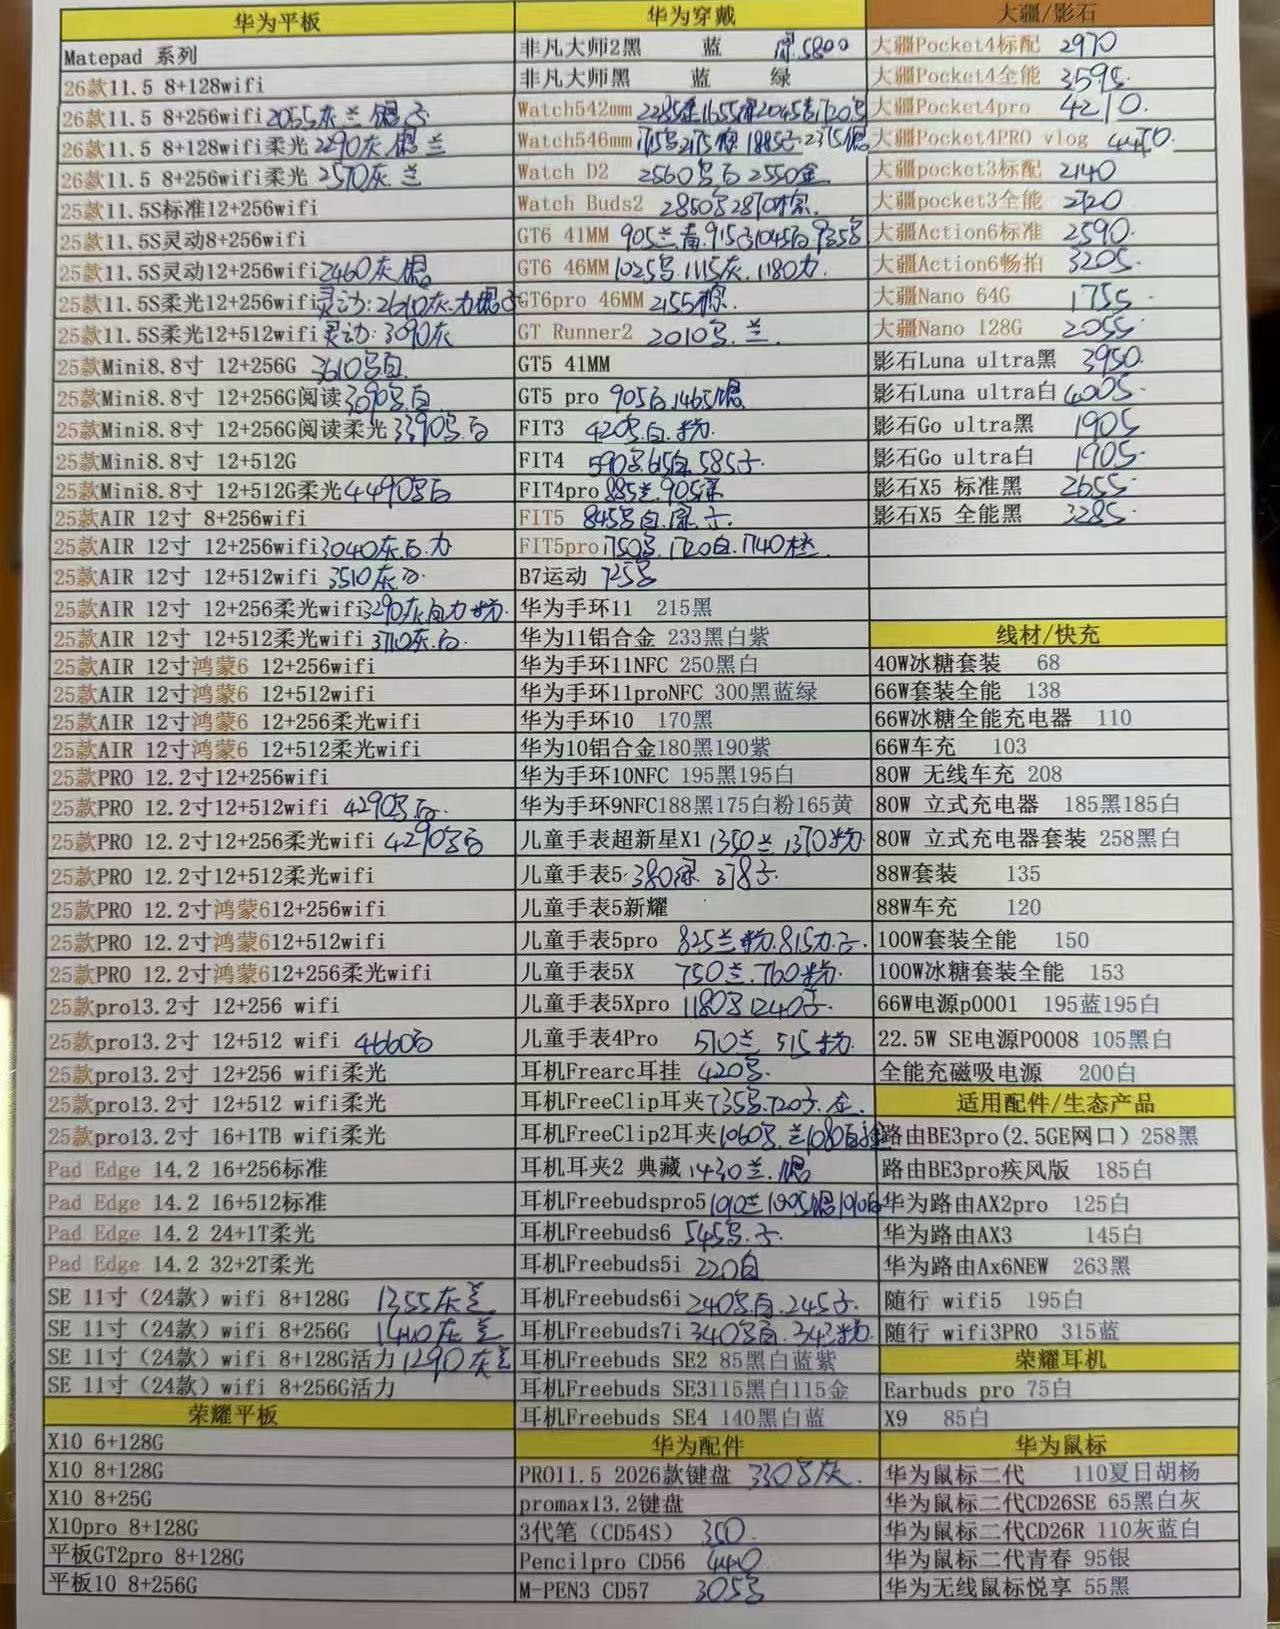 华为平板
Matepad 系列
26款11.5 8+128wifi
26款11.5 8+256wifi 2055灰兰
26款11.5 8+128wifi柔光 2290灰 兰
26款11.5 8+256wifi柔光 2570灰 兰
25款11.5S标准12+256wifi
25款11.5S灵动8+256wifi
25款11.5S灵动12+256wifi 2460灰
25款11.5S柔光12+256wifi 灵动:2610灰.力
25款11.5S柔光12+512wifi 灵动:3090灰
25款Mini8.8寸 12+256G 3610号白
25款Mini8.8寸 12+256G阅读 3090号.白
25款Mini8.8寸 12+256G阅读柔光 3390号.白
25款Mini8.8寸 12+512G
25款Mini8.8寸 12+512G柔光 4490号白
25款AIR 12寸 8+256wifi
25款AIR 12寸 12+256wifi 3040灰.白.力
25款AIR 12寸 12+512wifi 3510灰.白.
25款AIR 12寸 12+256柔光wifi 3290灰白力
25款AIR 12寸 12+512柔光wifi 3710灰.白.
25款AIR 12寸鸿蒙6 12+256wifi
25款AIR 12寸鸿蒙6 12+512wifi
25款AIR 12寸鸿蒙6 12+256柔光wifi
25款AIR 12寸鸿蒙6 12+512柔光wifi
25款PRO 12.2寸12+256wifi
25款PRO 12.2寸12+512wifi 4290号白.
25款PRO 12.2寸12+256柔光wifi 4290号白
25款PRO 12.2寸12+512柔光wifi
25款PRO 12.2寸鸿蒙612+256wifi
25款PRO 12.2寸鸿蒙612+512wifi
25款PRO 12.2寸鸿蒙612+256柔光wifi
25款pro13.2寸 12+256 wifi
25款pro13.2寸 12+512 wifi 4660白
25款pro13.2寸 12+256 wifi柔光
25款pro13.2寸 12+512 wifi柔光
25款pro13.2寸 16+1TB wifi柔光
Pad Edge 14.2 16+256标准
Pad Edge 14.2 16+512标准
Pad Edge 14.2 24+1T柔光
Pad Edge 14.2 32+2T柔光
SE 11寸（24款）wifi 8+128G 1355灰兰
SE 11寸（24款）wifi 8+256G 1440灰兰
SE 11寸（24款）wifi 8+128G活力 1290灰兰
SE 11寸（24款）wifi 8+256G活力
荣耀平板
X10 6+128G
X10 8+128G
X10 8+25G
X10pro 8+128G
平板GT2pro 8+128G
平板10 8+256G
华为穿戴
非凡大师2黑 蓝 5800
非凡大师黑 蓝 绿
Watch542mm
Watch546mm
Watch D2 2560号白 2550金
Watch Buds2 2850号2870棕.
GT6 41MM 905兰.青.915 1045白
GT6 46MM 1025号.1115灰.1180力
GT6pro 46MM 2155棕.
GT Runner2 2010号.兰.
GT5 41MM
GT5 pro 905白1465
FIT3 420号.白.粉.
FIT4 590号615白.585子.
FIT4pro 885兰.905绿
FIT5 845号白.绿.子.
FIT5pro 1750号.1720白.1740橙.
B7运动 725号
华为手环11 215黑
华为11铝合金 233黑白紫
华为手环11NFC 250黑白
华为手环11proNFC 300黑蓝绿
华为手环10 170黑
华为10铝合金180黑190紫
华为手环10NFC 195黑195白
华为手环9NFC188黑175白粉165黄
儿童手表超新星X1 1350兰 1370粉.
儿童手表5 380绿 378子.
儿童手表5新耀
儿童手表5pro 825兰粉.815力子.
儿童手表5X 750兰.760粉.
儿童手表5Xpro 1180号1240子.
儿童手表4Pro 510兰 515粉.
耳机Frearc耳挂 420号.
耳机FreeClip耳夹 735号.720子.金.
耳机FreeClip2耳夹 1060号.兰1080白
耳机耳夹2 典藏 1430兰.
耳机Freebudspro5 1010兰
耳机Freebuds6 545号.子.
耳机Freebuds5i 220白
耳机Freebuds6i 240号.白.245子.
耳机Freebuds7i 340号白.343粉.
耳机Freebuds SE2 85黑白蓝紫
耳机Freebuds SE3115黑白115金
耳机Freebuds SE4 140黑白蓝
华为配件
PRO11.5 2026款键盘 330号灰.
promax13.2键盘
3代笔（CD54S） 350.
Pencilpro CD56 440
M-PEN3 CD57 305号
大疆/影石
大疆Pocket4标配 2970
大疆Pocket4全能 3595.
大疆Pocket4pro 4210.
大疆Pocket4PRO vlog 4470.
大疆pocket3标配 2140
大疆pocket3全能 2720
大疆Action6标准 2590.
大疆Action6畅拍 3205.
大疆Nano 64G 1755.
大疆Nano 128G 2055.
影石Luna ultra黑 3950.
影石Luna ultra白 4005.
影石Go ultra黑 1905
影石Go ultra白 1905.
影石X5 标准黑 2655.
影石X5 全能黑 3285.
线材/快充
40W冰糖套装 68
66W套装全能 138
66W冰糖全能充电器 110
66W车充 103
80W 无线车充 208
80W 立式充电器 185黑185白
80W 立式充电器套装 258黑白
88W套装 135
88W车充 120
100W套装全能 150
100W冰糖套装全能 153
66W电源p0001 195蓝195白
22.5W SE电源P0008 105黑白
全能充磁吸电源 200白
适用配件/生态产品
路由BE3pro(2.5GE网口）258黑
路由BE3pro疾风版 185白
华为路由AX2pro 125白
华为路由AX3 145白
华为路由Ax6NEW 263黑
随行 wifi5 195白
随行 wifi3PRO 315蓝
荣耀耳机
Earbuds pro 75白
X9 85白
华为鼠标
华为鼠标二代 110夏日胡杨
华为鼠标二代CD26SE 65黑白灰
华为鼠标二代CD26R 110灰蓝白
华为鼠标二代青春 95银
华为无线鼠标悦享 55黑